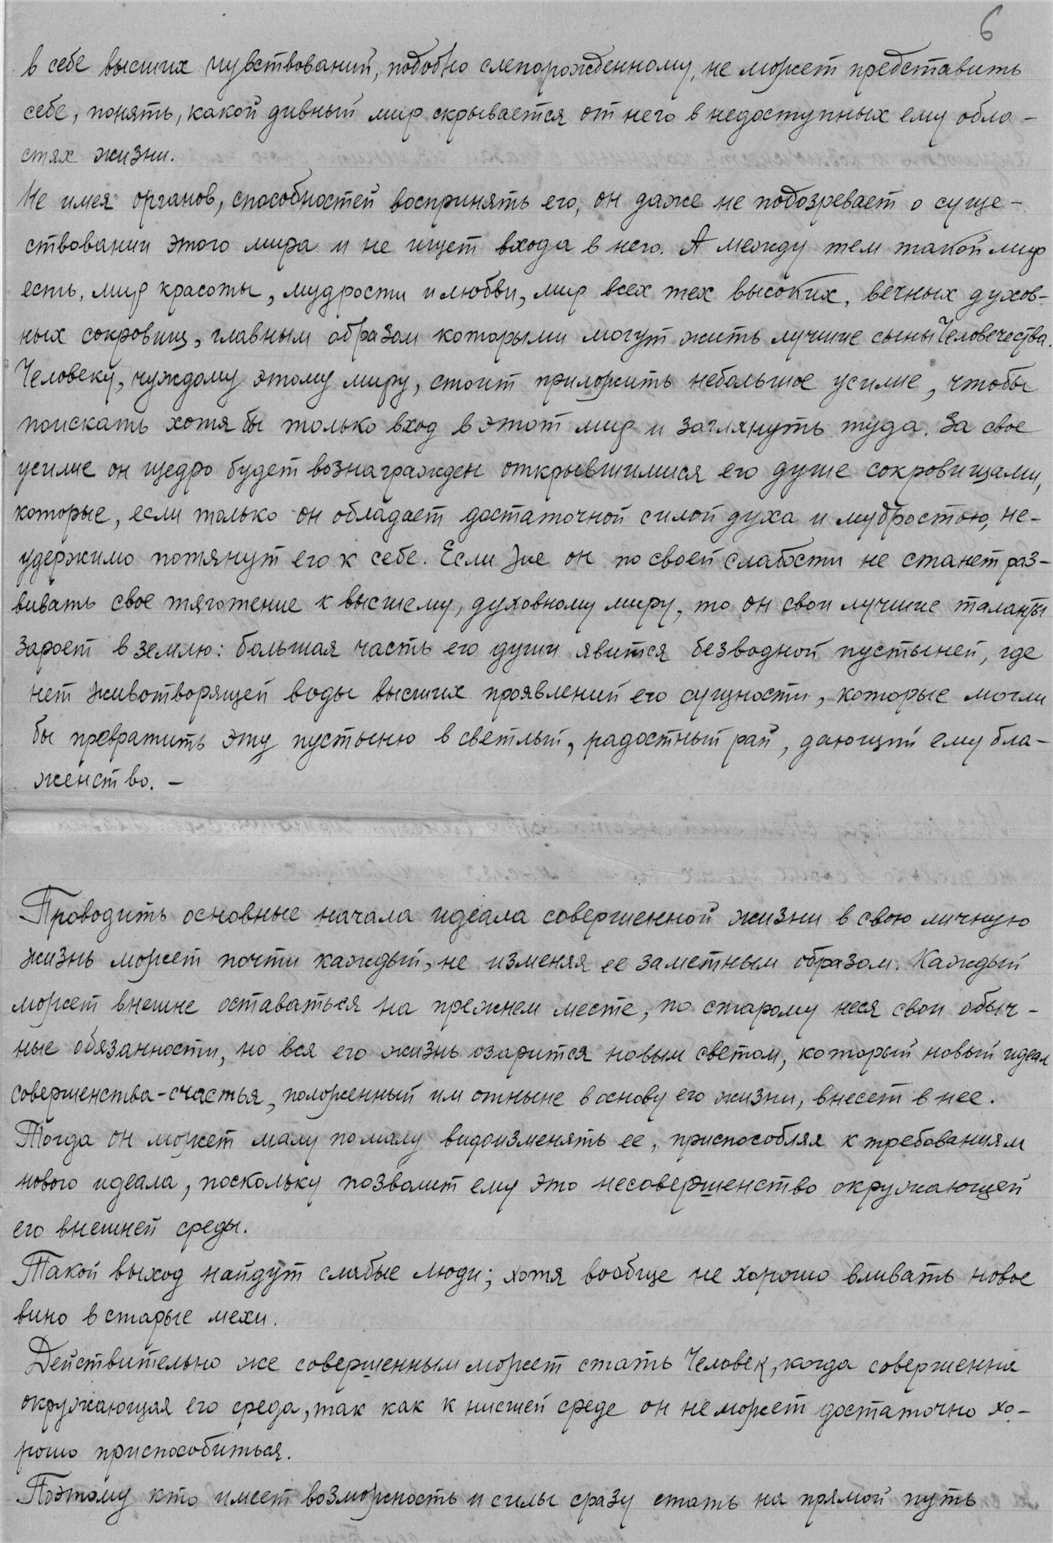 6
в себе высших чувствований, подобно слепорожденному, не может представить
себе, понять, какой дивный мир скрывается от него в недоступных ему обла-
стях жизни.
Не имея органов, способностей воспринять его, он даже не подозревает о суще-
ствовании этого мира и не ищет входа в него. А между тем такой мир
есть, мир красоты, мудрости и любви, мир всех тех высоких, вечных духов-
ных сокровищ, главным образом которыми могут жить лучшие сыны Человечества.
Человеку, чуждому этому миру, стоит приложить небольшое усилие, чтобы
поискать хотя бы только вход в этот мир и заглянуть туда. За свое
усилие он щедро будет вознагражден открывшимися его душе сокровищами,
которые, если только он обладает достаточной силой духа и мудростью, не-
удержимо потянут его к себе. Если же он по своей слабости не станет раз-
вивать свое тяготение к высшему, духовному миру, то он свои лучшие таланты
зароет в землю: большая часть его души явится безводной пустыней, где
нет животворящей воды высших проявлений его сущности, которые могли
бы превратить эту пустыню в светлый, радостный рай, дающий ему бла-
женство. –
Проводить основные начала идеала совершенной жизни в свою личную
жизнь может почти каждый, не изменяя ее заметным образом. Каждый
может внешне оставаться на прежнем месте, по старому неся свои обыч-
ные обязанности, но вся его жизнь озарится новым светом, который новый идеал
совершенства-счастья, положенный им отныне в основу его жизни, внесет в нее.
Тогда он может малу помалу видоизменять ее, приспособляя к требованиям
нового идеала, поскольку позволит ему это несовершенство окружающей
его внешней среды.
Такой выход найдут слабые люди; хотя вообще не хорошо вливать новое
вино в старые мехи.
Действительно же совершенным может стать Человек, когда совершенна
окружающая его среда, так как к низшей среде он не может достаточно хо-
рошо приспособиться.
Поэтому кто имеет возможность и силы сразу стать на прямой путь